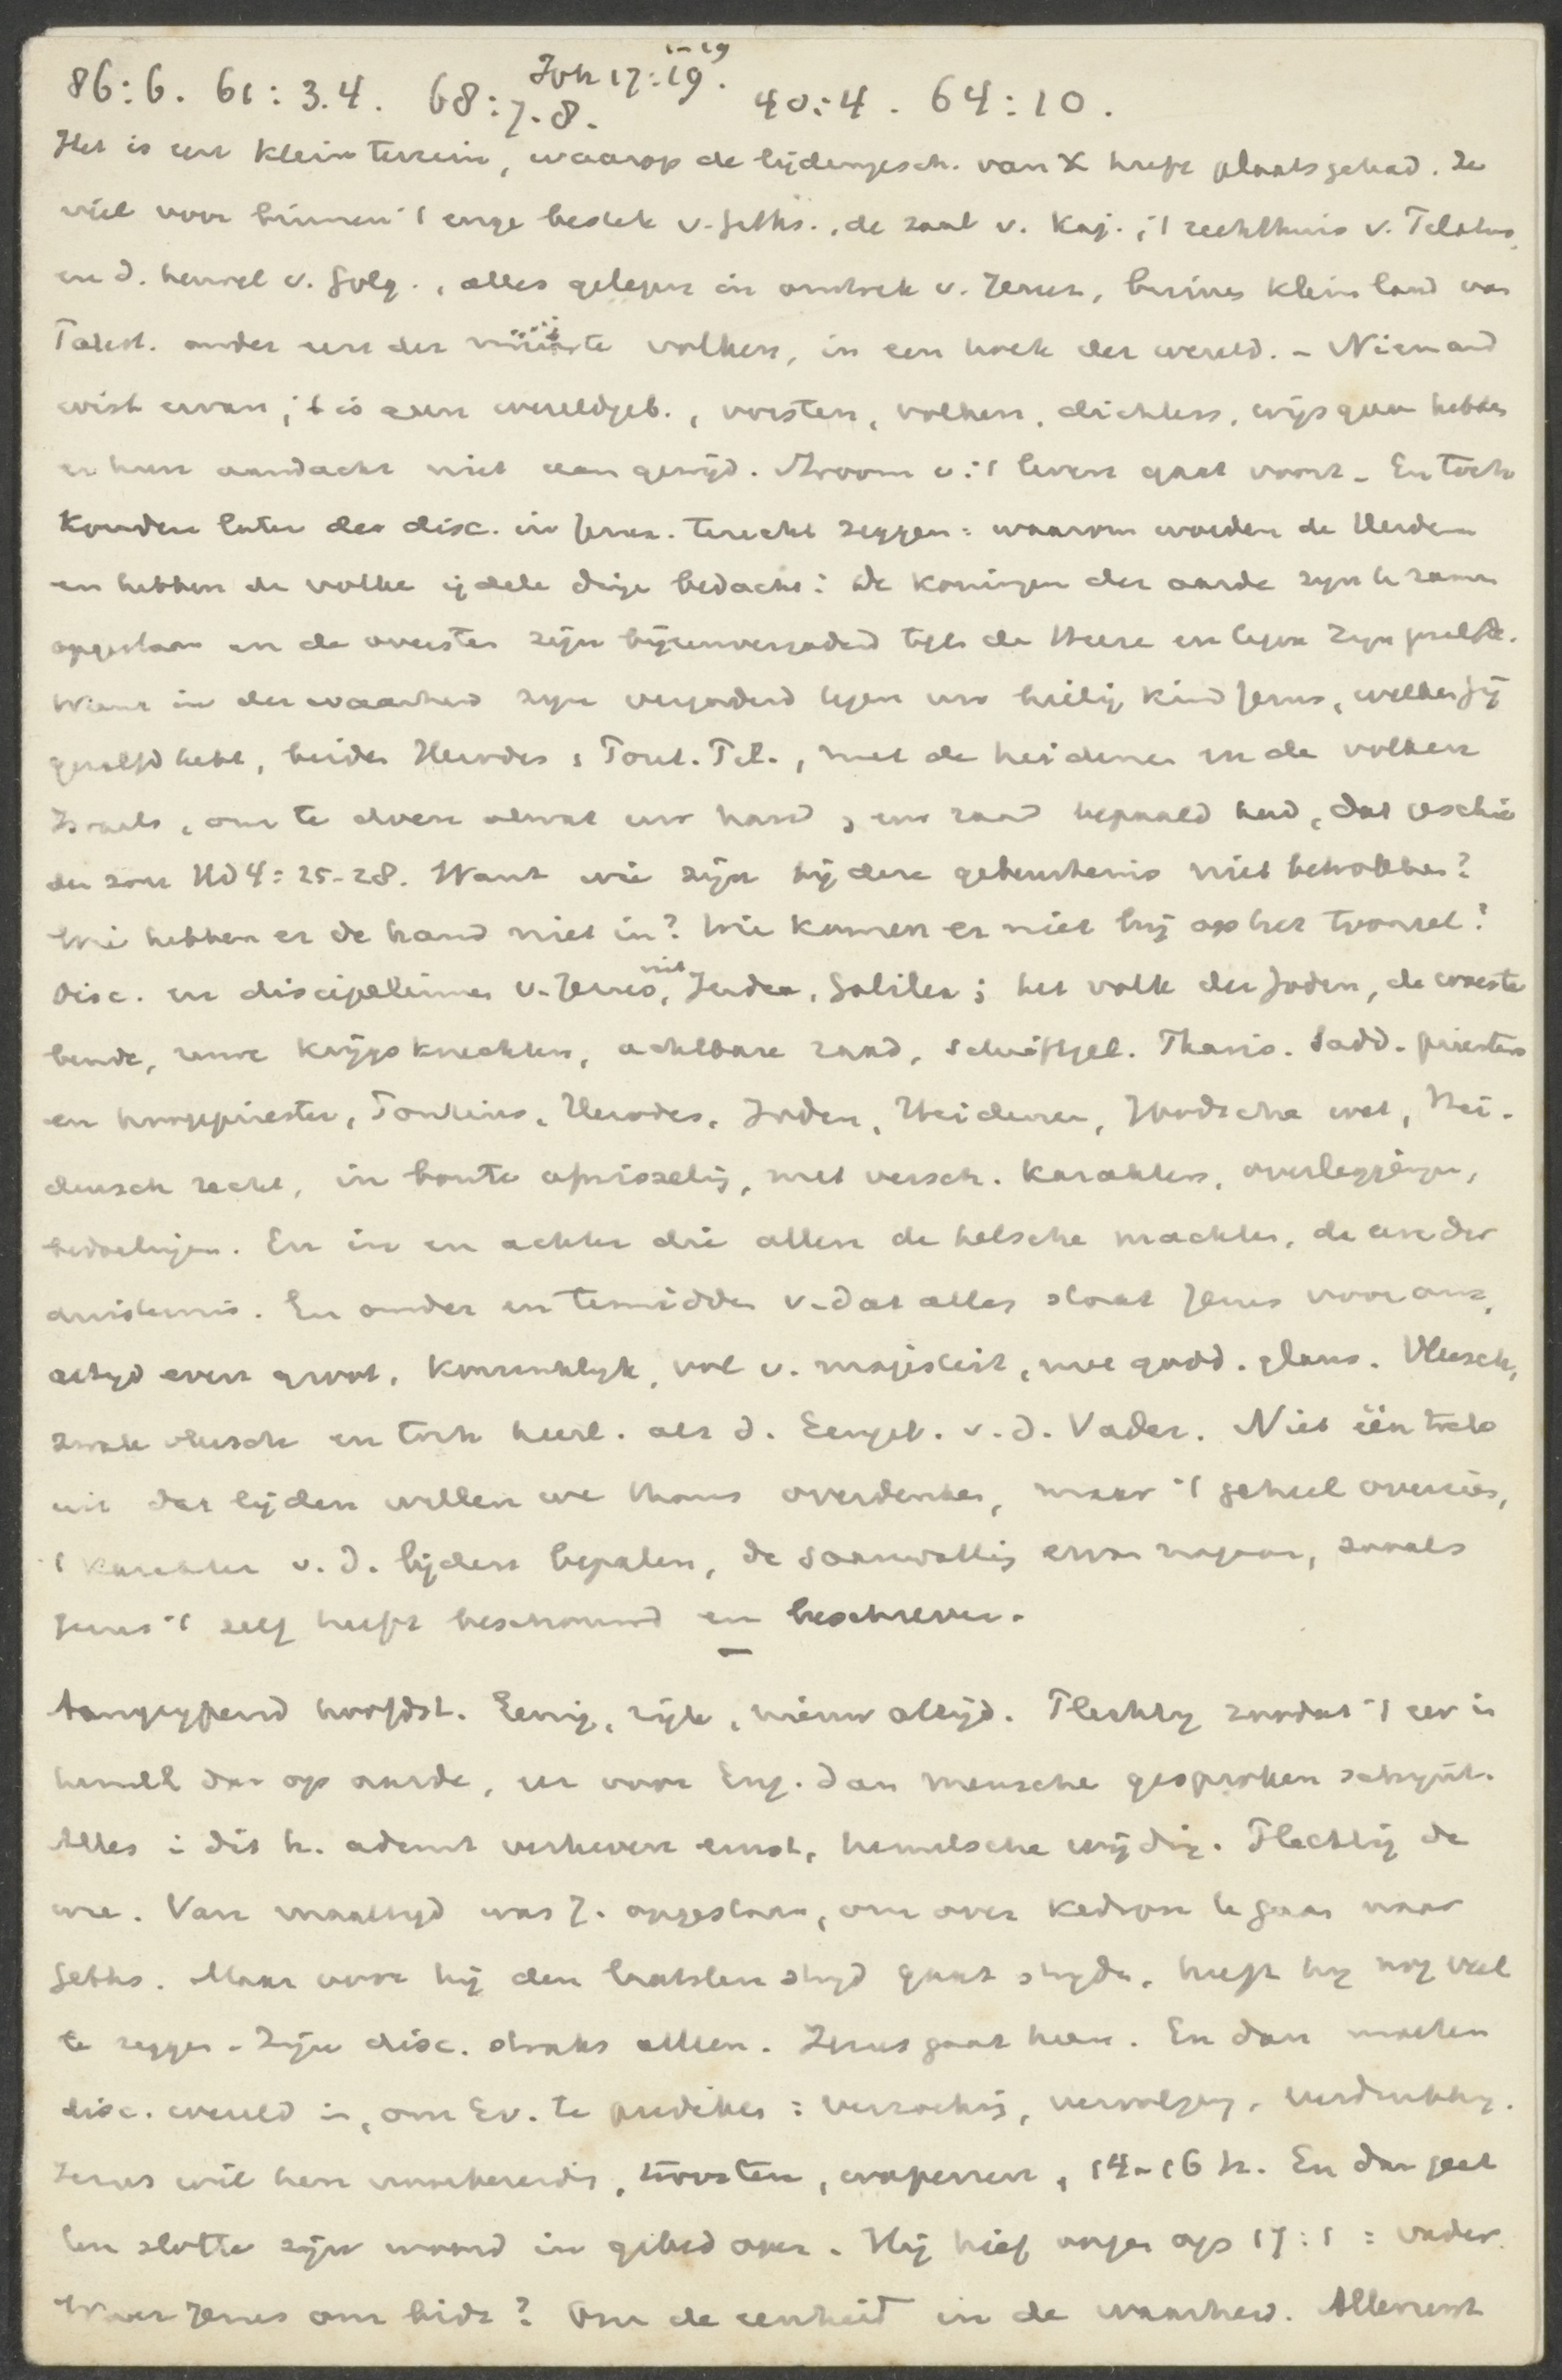 1-19
Joh 17:19.
86:6. 61:3.4. 68:7.8. 40:4. 64:10.
Het is een klein terrein, waarop de lijdensgesch. van X heeft plaats gehad. Ze
viel voor binnen 't enge bestek v. Geths., de zaal v. Kaj., 't rechthuis v. Pilatus,
en d. heuvel v. Golg., alles gelegen in omtrek v. Jeruz., binnen klein land van
Palest. onder een der volken, in een hoek der wereld. - Niemand
wist ervan; 't is geen wereldgeb., vorsten, volken, dichters, wijsgeeren hebben
er hun aandacht niet aan gewijd. Stroom v. 't leven gaat voort. En toch
konden later der disc. in Jeruz. terecht zeggen: waarom woeden de Heidenen
en hebben de volke ijdele dinge bedacht: de koningen der aarde zyn te zamen
opgestaan en de oversten zijn bijeenvergaderd tgn de Heere en tegen Zyn gezalfde.
Want in der waarheid zyn vergaderd tegen uw heilig kind Jezus, welken Gij
gezalfd hebt, beide Herodes & Pont. Pil., met de heidenen en de volken
Israels, om te doen alwat uw hand & uw raad bepaald had, dat geschie
den zou Hd 4:25-28. Want wie zijn bij deze gebeurtenis niet betrokken?
Wie hebben er de hand niet in? Wie komen er niet bij op het tooneel?
Disc. en discipelinnen v. Jezus, uit Judea, Galilea; het volk der Joden, de woeste
bende, ruwe krijgsknechten, achtbare raad, schriftgel. Pharis. Sadd. priesters
en hoogepriester, Pontius, Herodes, Joden, Heidenen, Joodsche wet, Hei-
densch recht, in bonte afwisseling, met versch. karakters, overleggingen,
bedoelingen. En in en achter die allen de helsche machten, de ure der
duisternis. En onder en temidden v. dat alles staat Jezus voor ons,
altyd even groot, koninklyk, vol v. majesteit, uwe godd. glans. Vleesch,
zwak vleesch en toch heerl. als d. Eengeb. v. d. Vader. Niet één trek
uit dat lijden willen we thans overdenken, maar 't geheel overzien,
't karakter v. d. lijden bepalen, de saamvatting ervan nagaan, zooals
Jezus 't zelf heeft beschouwd en beschreven.
Aangrypend hoofdst. Eenig, rijk, nieuw altijd. Plechtig zoodat 't eer in
hemel dan op aarde, eer voor Eng. dan mensche gesproken schynt.
Alles i dit h. ademt verheven ernst, hemelsche wijding. Plechtig de
ure. Van maaltyd was J. opgestaan, om over Kedron te gaan naar
Geths. Maar voor hij den laatsten stryd gaat stryden, heeft hy nog veel
te zeggen. Zijn disc. straks alleen. Jezus gaat heen. En dan moeten
disc. wereld in, om Ev. te prediken: verzoeking, vervolging, verdrukking.
Jezus wil hen voorbereiden, troosten, wapenen, 14-16 h. En dan gaat
ten slotte zijn mond in gebed open. Hij hief oogen op 17:1: vader.
Waar Jezus om bidt? Om de eenheid in de waarheid. Allereerst